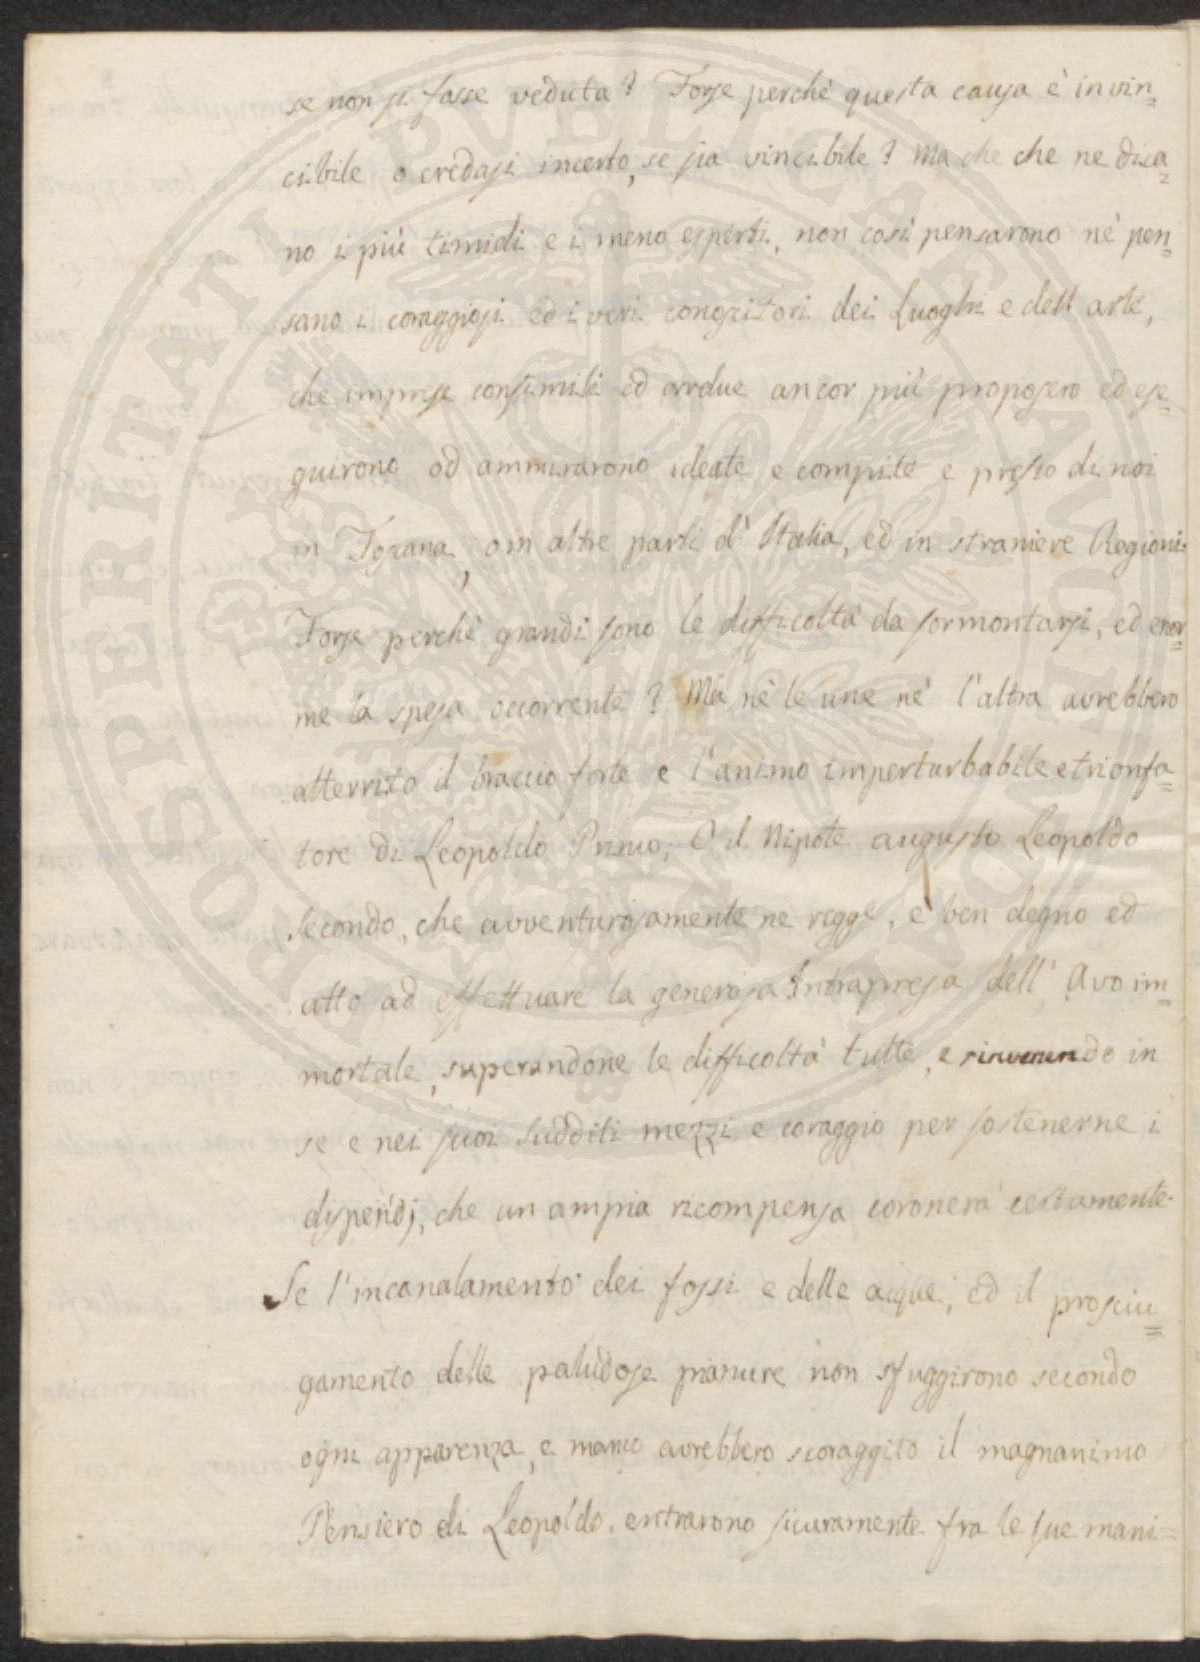 se non si fosse veduta? Forse perchè questa causa è invin=
cibile o credasi incerto, se sia vincibile? Ma che che ne dica=
no i più timidi e i meno esperti, non così pensarono nè pen=
sano i coraggiosi ed i veri conoscitori dei Luoghi e dell'arte,
che imprese consimili ed ardue ancor più proposero ed ese=
guirono od ammirarono ideate e compite e presso di noi
in Toscana, o in altre parti d'Italia, ed in straniere Regioni.
Forse perchè grandi sono le difficoltà da sormontarsi, ed enor=
me la spesa occorrente? Ma nè le une nè l'altra avrebbero
atterrito il braccio forte e l'animo imperturbabile e trionfa=
tore di Leopoldo Primo; E il Nipote augusto Leopoldo
Secondo, che avventurosamente ne regge, è ben degno ed
atto ad effettuare la generosa Intrapresa dell'Avo im=
mortale, superandone le difficoltà tutte, e rinvenendo in
se e nei suoi Sudditi mezzi e coraggio per sostenerne i
dispendj, che un ampia ricompensa coronerà certamente.
Se l'incanalamento dei fossi e delle acque, ed il prosciu=
gamento delle paludose pianure non sfuggirono secondo
ogni apparenza, e manco avrebbero scoraggito il magnanimo
Pensiero di Leopoldo, entrarono sicuramente fra le sue mani=
PROSPERITATI PUBLICAE AUGENDAE